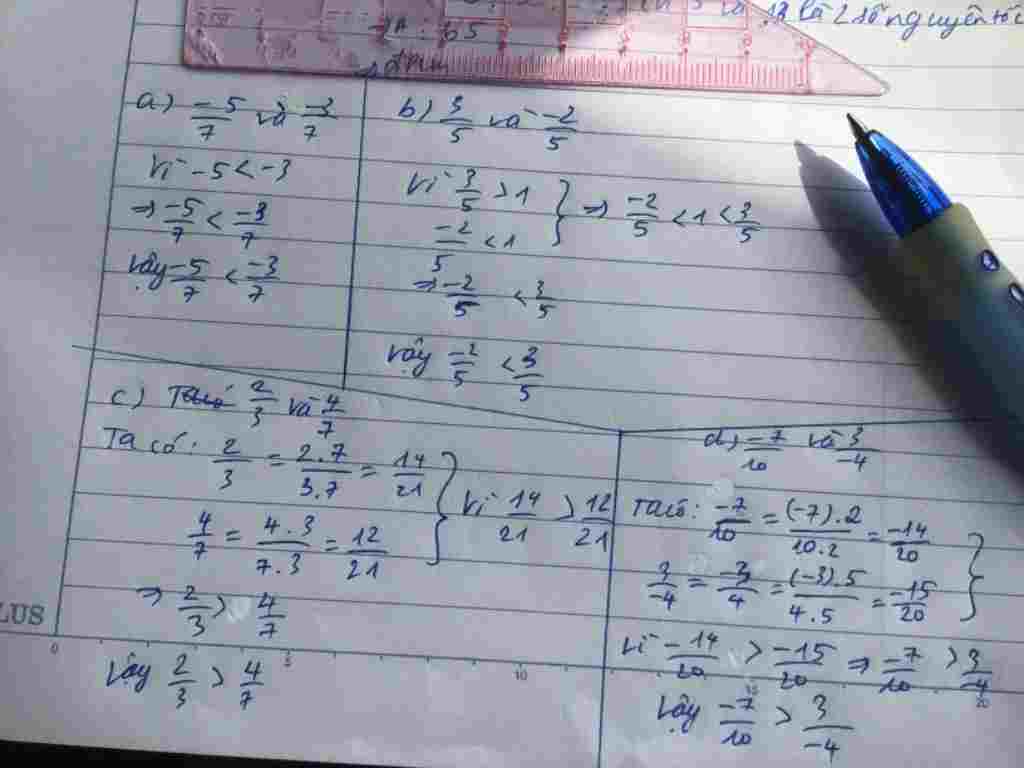 và 12 là 2 số nguyên tố
: 65
a) -5/7 và -3/7
Vì -5 < -3
=> -5/7 < -3/7
Vậy -5/7 < -3/7
b) 3/5 và -2/5
Vì 3/5 > 1
-2/5 < 1 } => -2/5 < 1 < 3/5
=> -2/5 < 3/5
Vậy -2/5 < 3/5
c) 2/3 và 4/7
Ta có: 2/3 = 2.7/3.7 = 14/21
4/7 = 4.3/7.3 = 12/21 } Vì 14/21 > 12/21
=> 2/3 > 4/7
Vậy 2/3 > 4/7
d) -7/10 và 3/-4
Ta có: -7/10 = (-7).2/10.2 = -14/20
3/-4 = -3/4 = (-3).5/4.5 = -15/20 }
Vì -14/20 > -15/20 => -7/10 > 3/-4
Vậy -7/10 > 3/-4
LUS
0 5 10 15 20